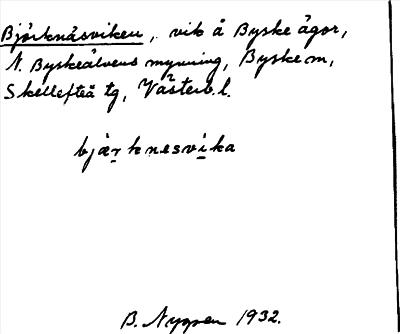 Björknäsviken, vik å Byske ägor,
N. Byskeälvens mynning, Byske sn,
Skellefteå tg, Västerb. l.
bjär̯knesvi̱ka
B. Nygren 1932.